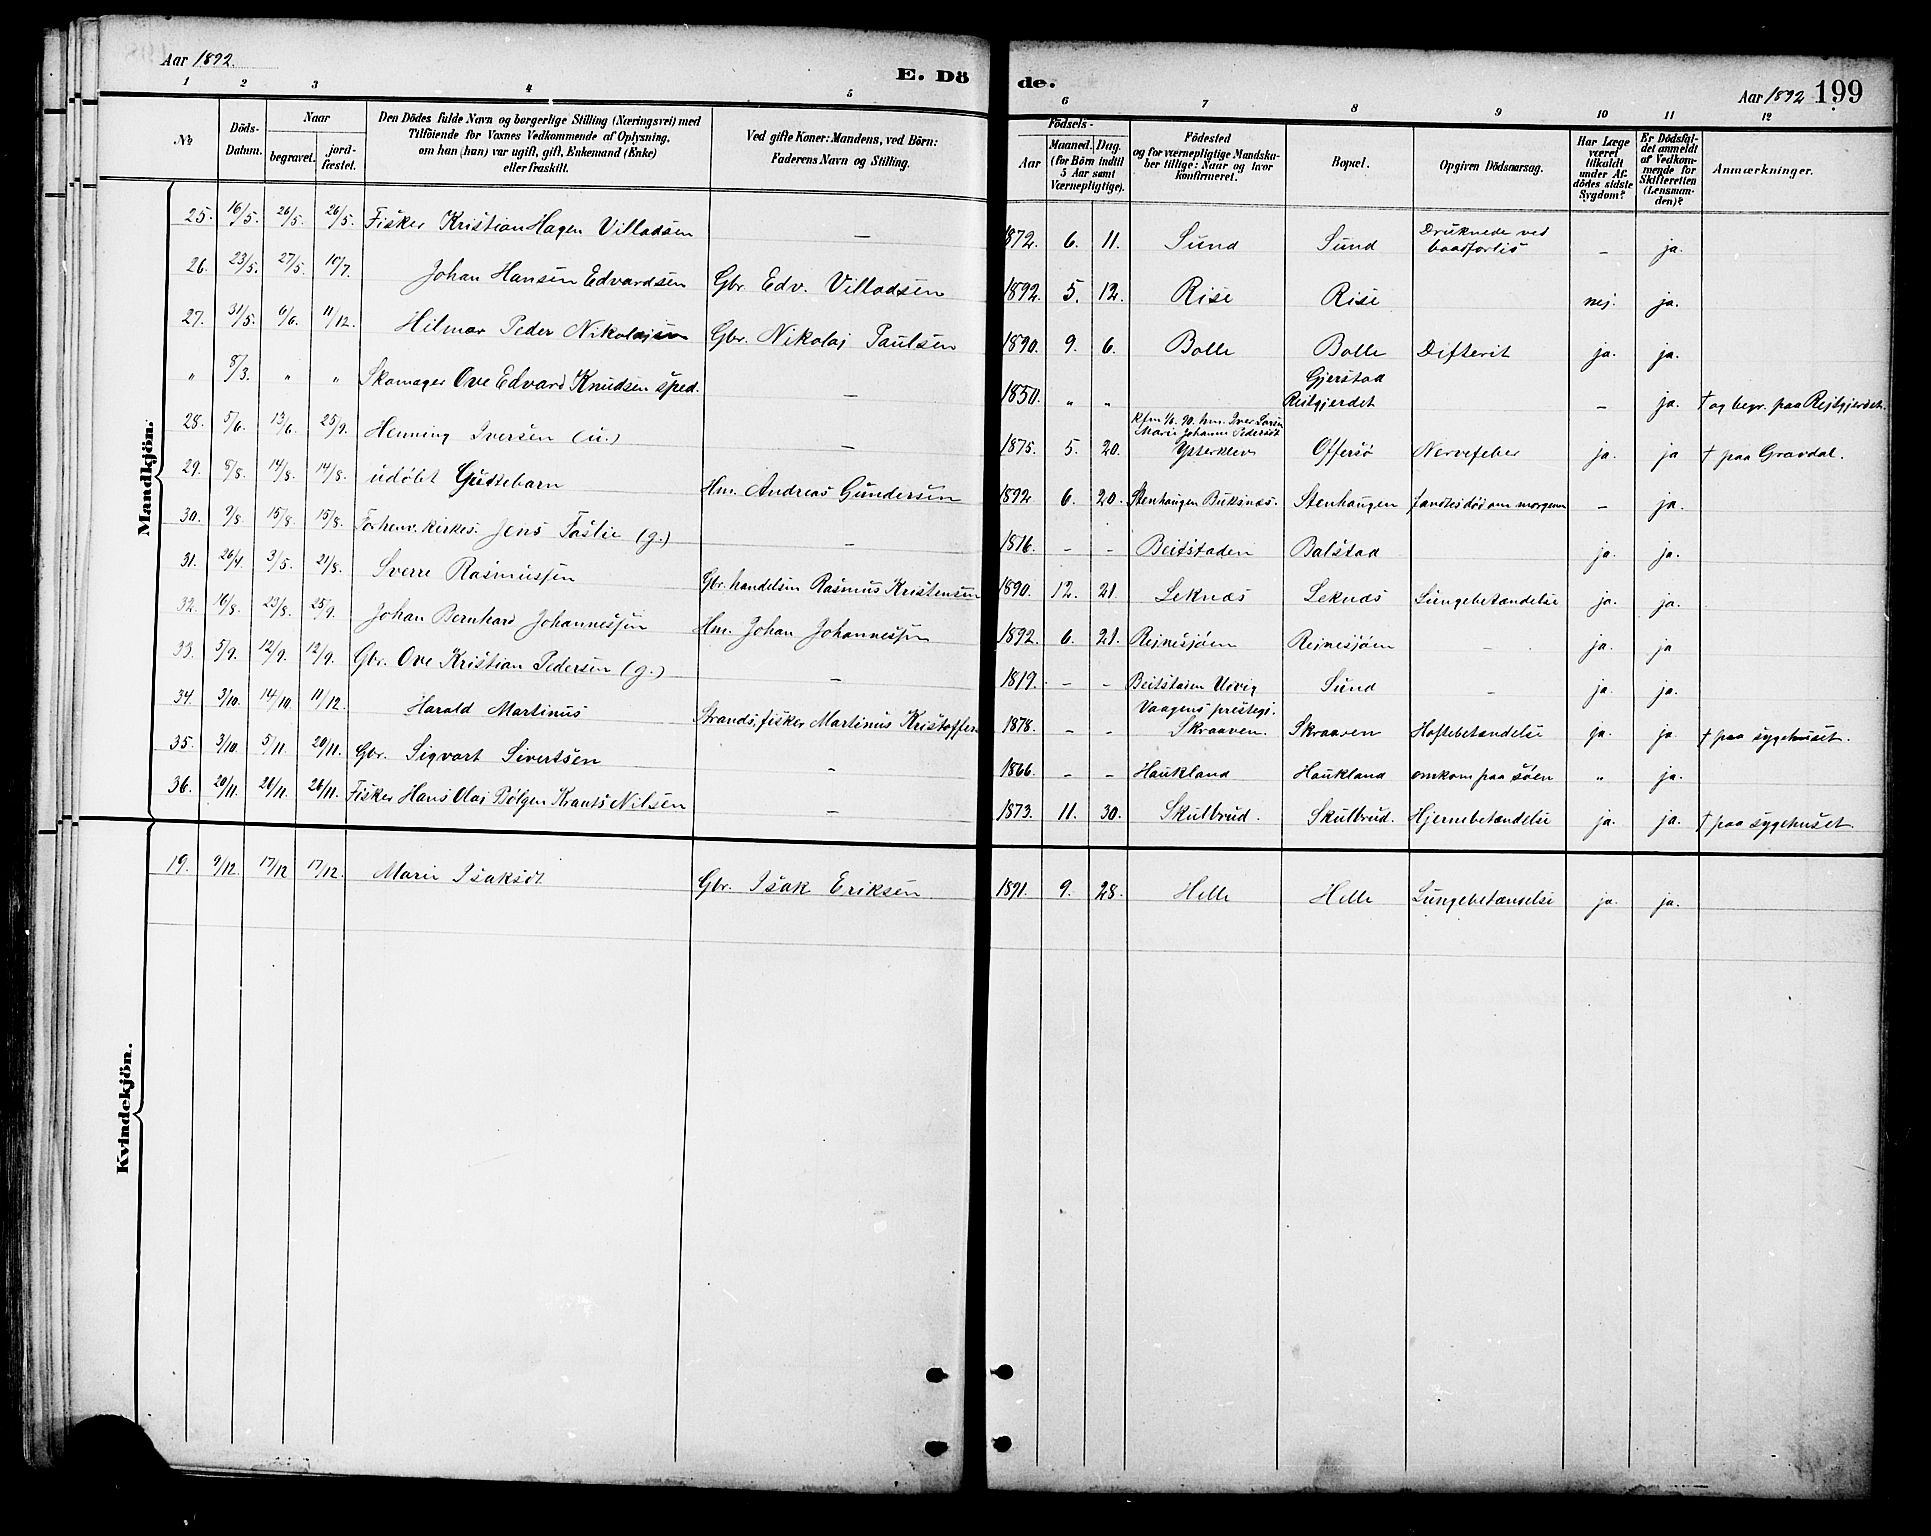 Aar 1892.
E. Dö
de.
Aar 1892
199
1 2 3 4 5 6 7 8 9 10 11 12
No
Döds-Datum.
Naar
begravet.
jord-fæstet.
Den Dödes fulde Navn og borgerlige Stilling (Næringsvei) med
Tilföiende for Voxnes Vedkommende af Oplysning,
om han (hun) var ugift, gift, Enkemand (Enke)
eller fraskilt.
Ved gifte Koner: Mandens, ved Börn:
Faderens Navn og Stilling.
Födsels-
Aar
Maaned. Dag.
(for Börn indtil
5 Aar samt
Værnepligtige).
Födested
og for værnepligtige Mandska-
ber tillige: Naar og hvor
konfirmeret.
Bopæl.
Opgiven Dödsaarsag.
Har Læge
været
tilkaldt
under Af-
dödes sidste
Sygdom?
Er Dödsfal-
det anmeldt
af Vedkom-
mende for
Skifteretten
(Lensman-
den)?
Anmærkninger.
Mandkjön.
25. 16/5. 26/5. 26/5. Fisker Kristian Hagen Villadsen — 1872. 6. 11. Sund Sund Druknede ved baadforlis — ja.
26. 23/5. 27/5. 10/7. Johan Hansen Edvardsen Gbr. Edv. Villadsen 1892. 5. 12. Rise Rise nej. ja.
27. 31/5. 6/6. 11/12. Hilmar Peder Nikolajsen Gbr. Nikolaj Paulsen 1890. 9. 6. Bolle Bolle Difterit ja. ja.
" 8/3. " " Skomager Ove Edvard Knudsen sped. — 1850. " " Gjerstad Reitgjerdet — ja. † og begr. paa Rejtgjerdet.
28. 5/6. 13/6. 25/9. Henning Iversen (u.) — 1875. 5. 20. Ysterklev Offersø Nervefeber ja. ja † paa Gravdal.
29. 8/8. 14/8. 14/8. udøbt Guttebarn Hm. Andreas Gundersen 1892 6. 20. Stenhaugen Buksnæs. Stenhaugen fandtes død om morgenen — ja.
30. 9/8. 15/8. 15/8. Forhenv. kirkes. Jens Taslie (g.) — 1816. — — Beitstaden Balstad ja. ja.
31. 26/4 3/5. 21/8. Sverre Rasmussen Gbr. handelsm Rasmus Kristensen 1890. 12. 21. Leknæs Leknæs Lungebetændelse ja. ja.
32. 16/8. 23/8. 25/9. Johan Bernhard Johannessen Hm. Johan Johannessen 1892. 6. 21. Rejnesjøen Rejnesjöen — ja. ja
33. 5/9. 12/9. 12/9. Gbr. Ove Kristian Pedersen (g.) — 1819. — — Beitstaden Sund — ja. ja.
34. 3/10. 14/10. 11/12. Harald Martinus Strands. fisker Martinus Kristoffersen 1878. — — Vaagens prestegj. Skraaven. Skraaven Hoftebetændelse ja. ja. † paa sygehuset.
35. 3/10. 5/11. 20/11. Gbr. Sigvart Sivertsen — 1866. — — Haukland Haukland omkom paa søen " ja.
36. 20/11. 26/11. 26/11. Fisker Hans Olai Bølgen Krants Nilsen — 1873. 11. 30. Skulbrud. Skulbrud. Hjernebetændelse ja. ja. † paa sygehuset.
Kvindekjön.
19. 9/12. 17/12 17/12. Marie Isaksdt Gbr. Isak Eriksen. 1891. 9. 28. Helle Helle Lungebetændelse ja. ja.